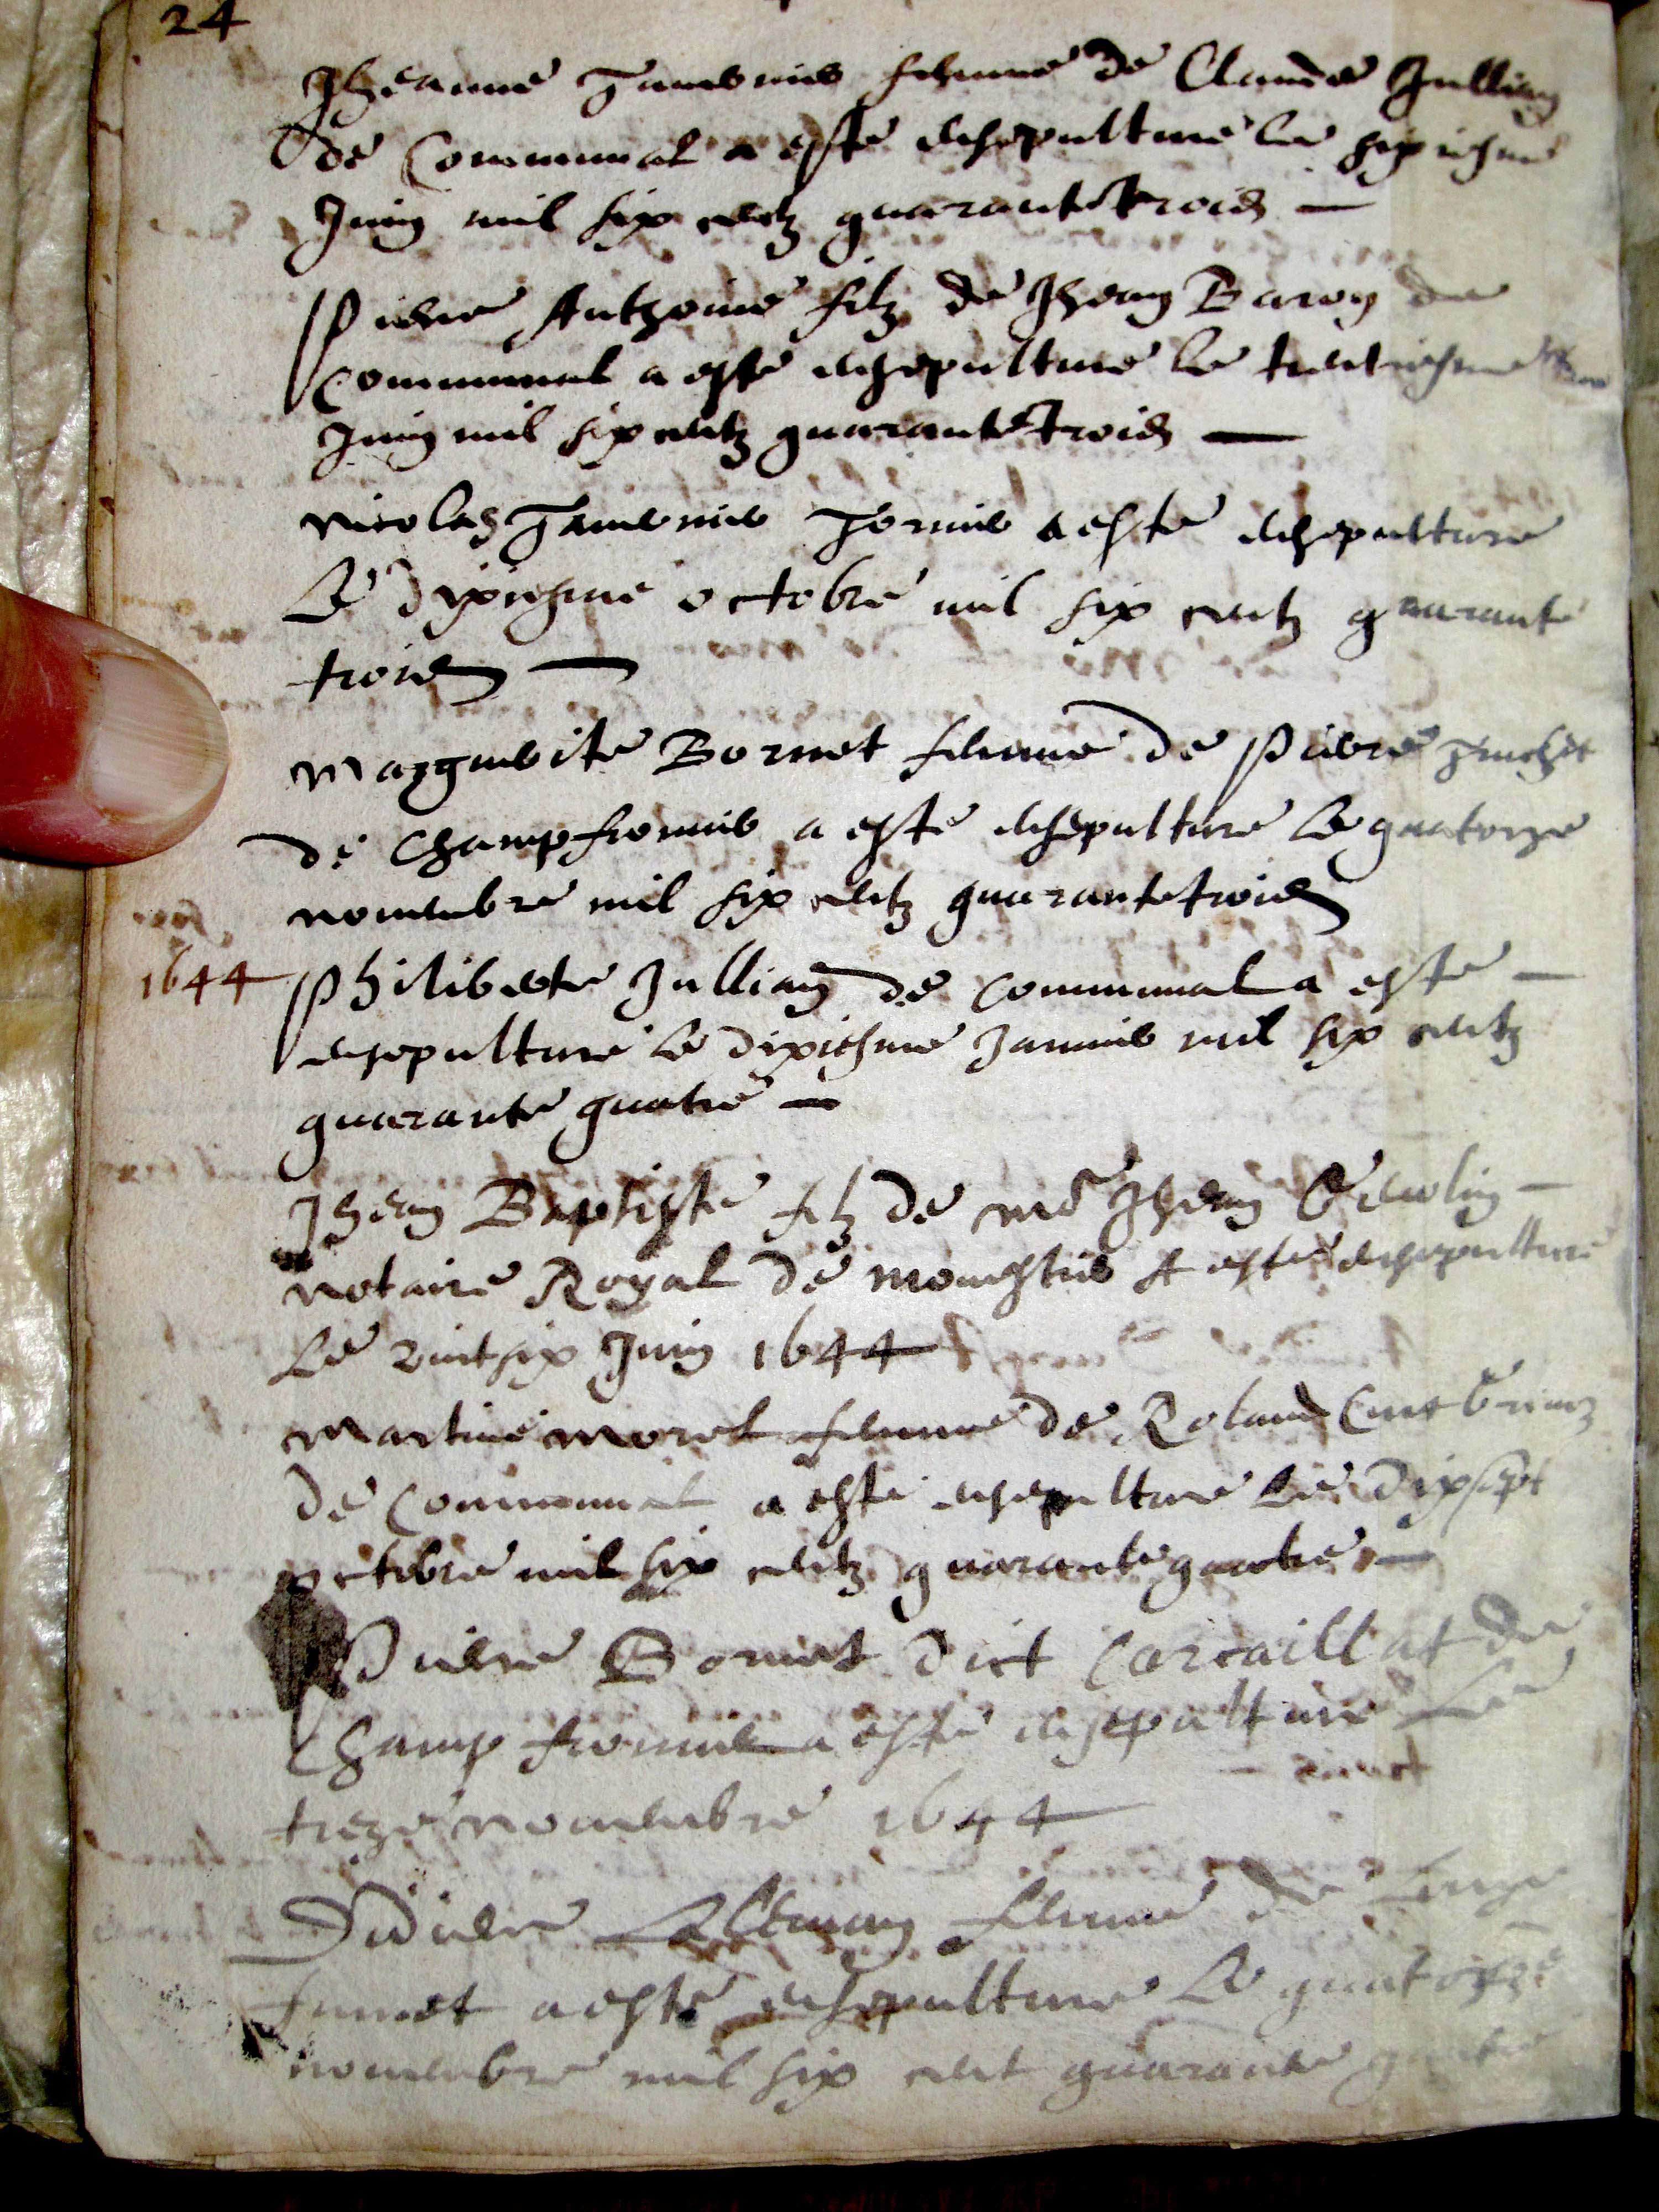 24
Jheanne Tavernier femme de Claude Jullian
de Communal a esté ensepulturé le sixiesme
Juin mil six centz quarantetrois
Pierre Anthoine filz de Jhean Baron de
Communal a esté ensepulturé le trentiesme
Juin mil six centz quarantetrois
Nicolas Tavernier Tornier a esté ensepulturé
Le dixiesme octobre mil six centz quarante
trois
Marguerite Bornet femme de Pierre
de Champfromier a esté ensepulturé le quatorze
novembre mil six centz quarantetrois
1644 Philiberte Jullian de Communal a esté
ensepulturé le dixiesme Janvier mil six centz
quarante quatre
Jhean Baptiste filz de me Jhean
notaire Royal de monestier A esté ensepulturé
Le vintsix Juin 1644
Martine moret femme de Roland
de Communal a esté ensepulturé Le dixsept
octobre mil six centz quarante quatre
Pierre Bornet dict Corcaillat de
Champfromier a esté ensepulturé Le
treze novembre 1644
Didiere femme de
a esté ensepulturé Le quatorze
novembre mil six cent quarante quatre